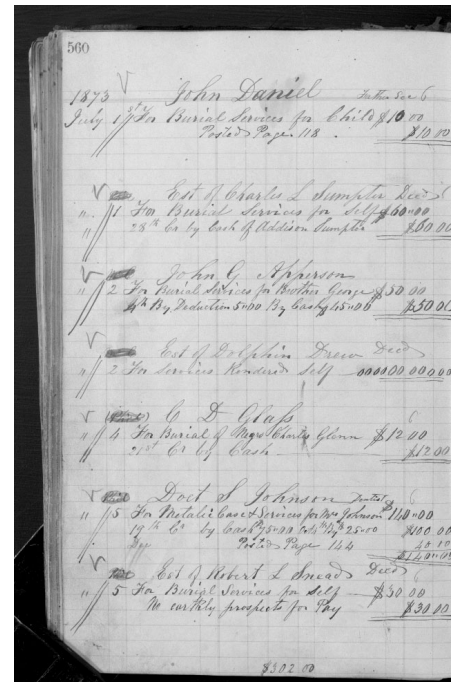 560
1873 John Daniel
July 1st For Burial Services for Child $10 00
Posted Page 118 . $10 00
Est of Charles L Sumpter Decd
" 1 For Burial Services for Self $60"00
" 28th Cr by Cash of Addison Sumpter $60 00
John G Apperson
" 2 For Burial Services for Brother George $50 00
4th By Deduction 5"00 By Cash $45"00 $50 00
Est of Dolphin Drew Decd
" 2 For Services Rendered Self
C D Glass
" 4 For Burial of Negro Charles Glenn $12 00
21st Cr by Cash $12 00
Doct S Johnson
" 5 For Metalic Case & Services for Mrs Johnson $140"00
19th Cr by Cash 75"00 25"00 $100 00
Posted Page 144 40 00
$140"00
Est of Robert L Snead Decd
" 5 For Burial Services for Self $30 00
No earthly prospects for Pay $30 00
$302 00